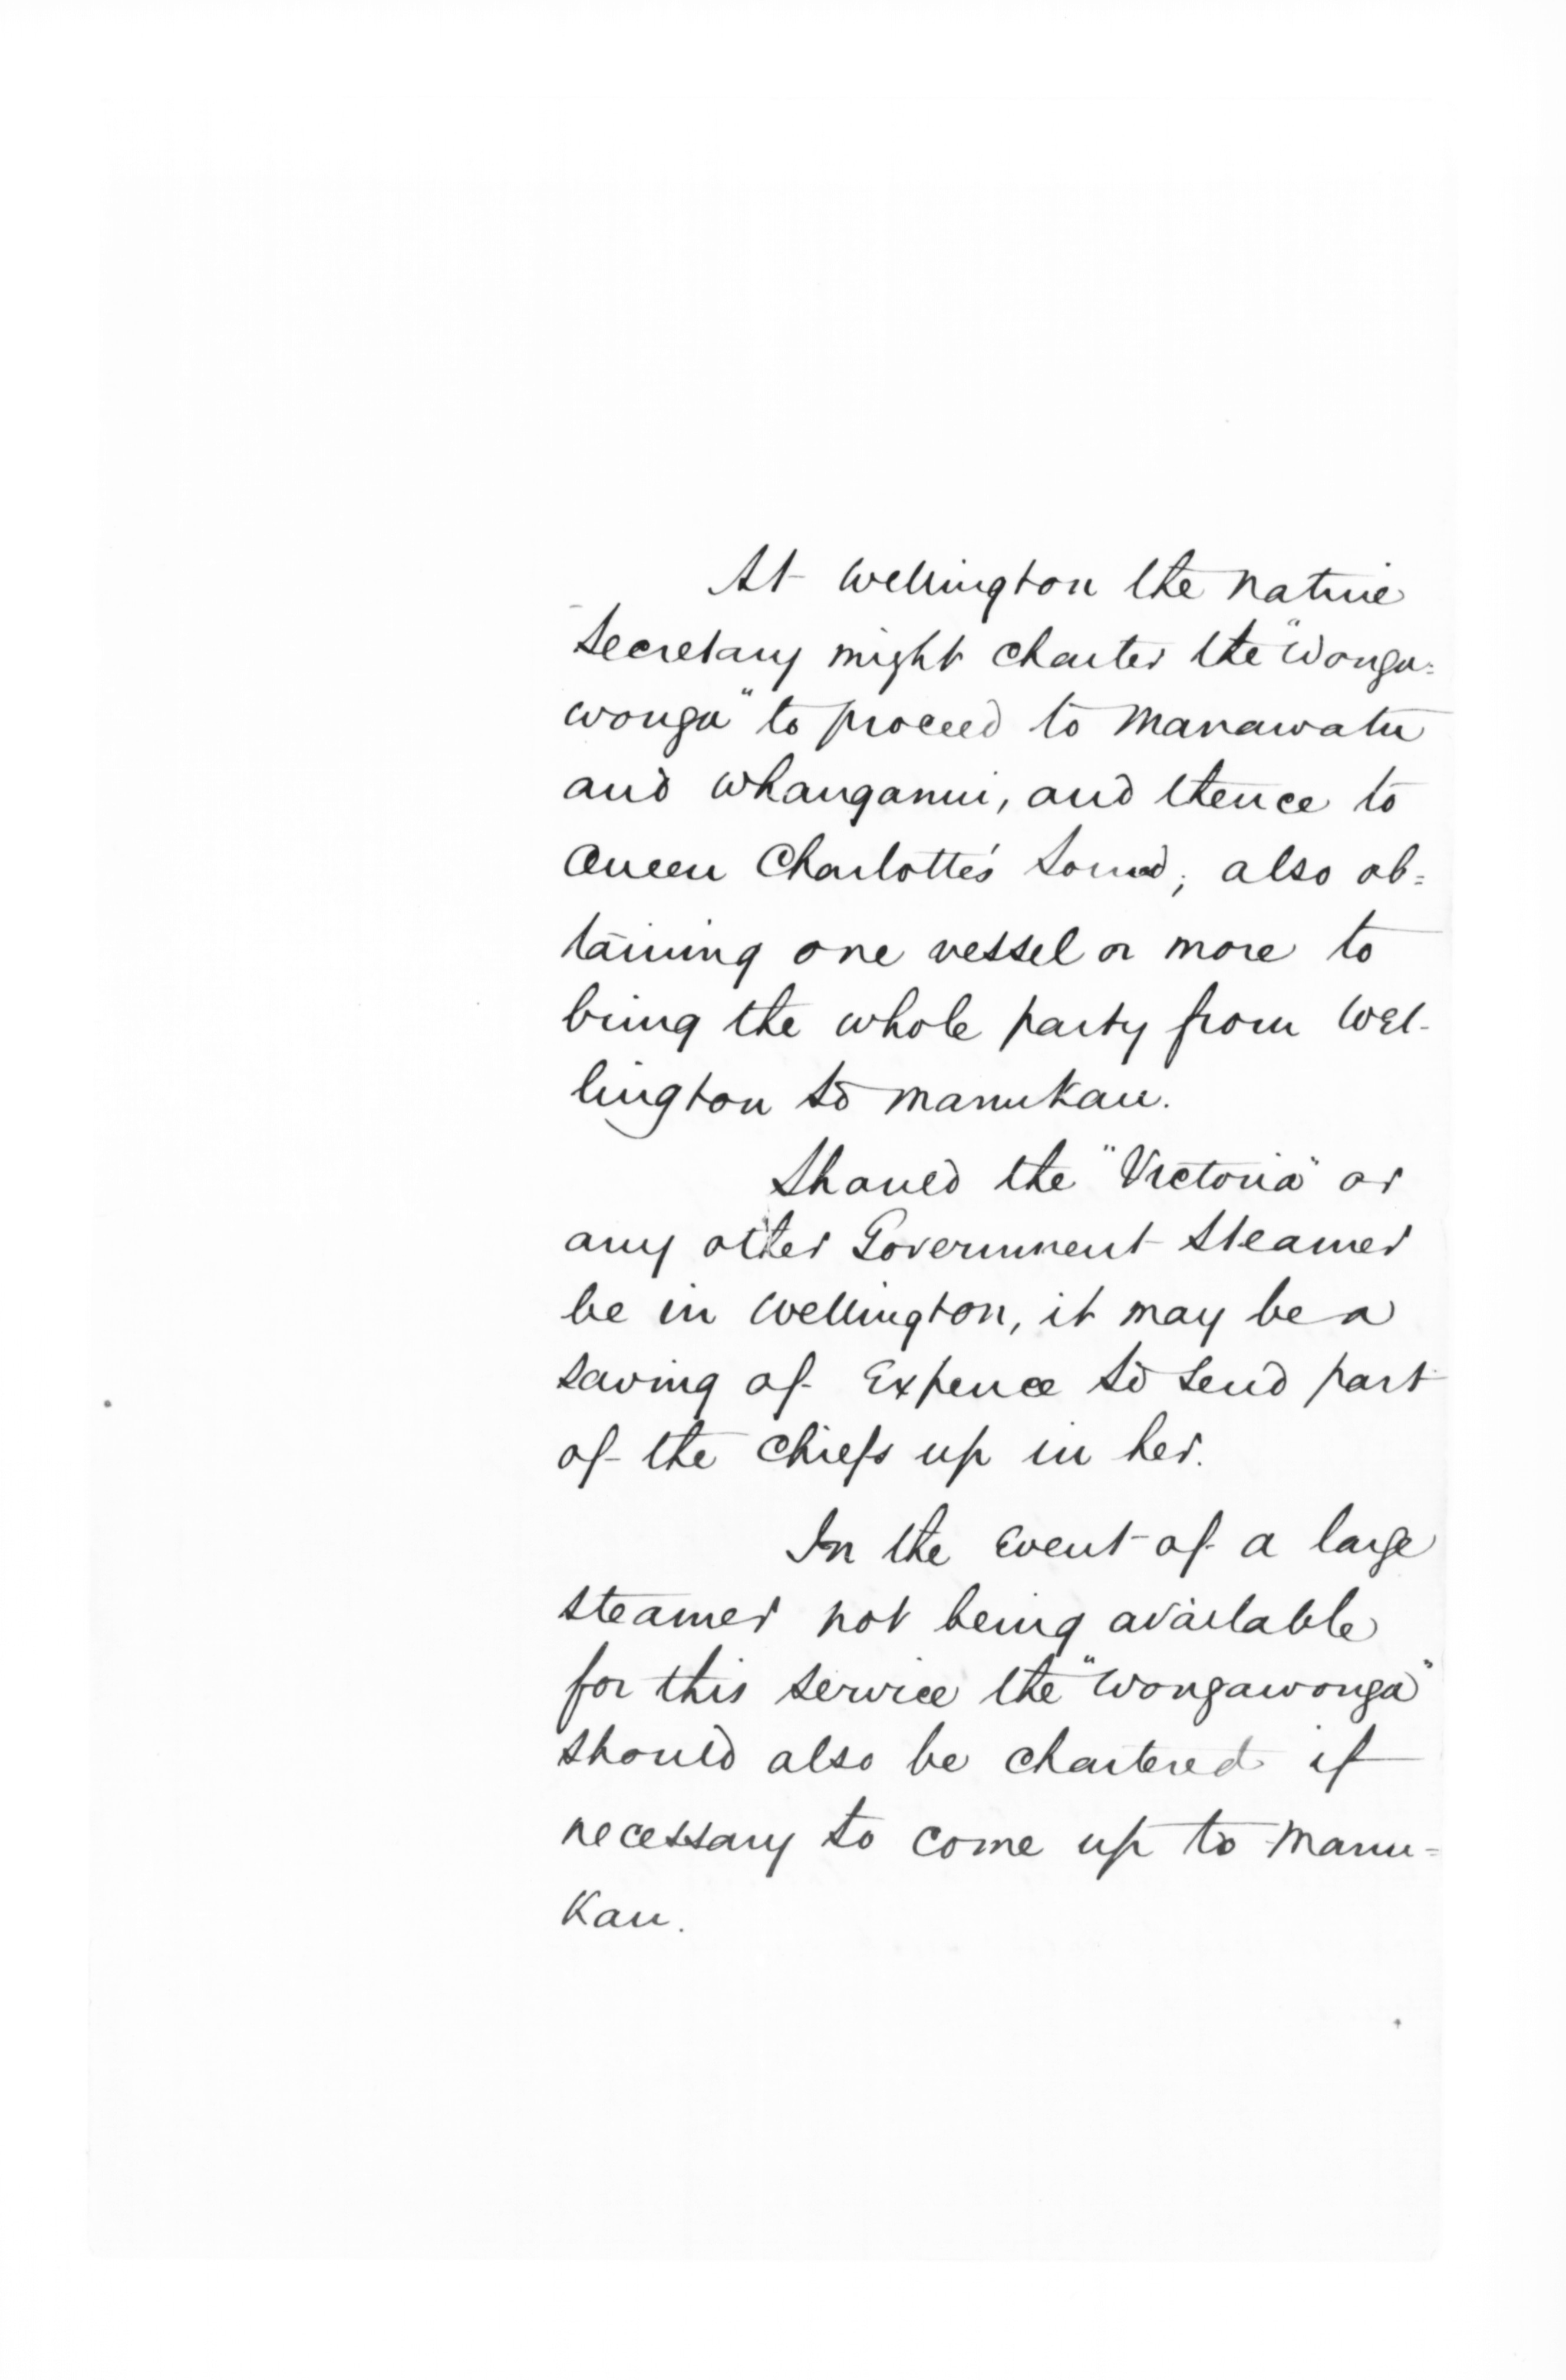 At Wellington the Native
Secretary might charter the "Wonga=
wonga" to proceed to Manawatu
and Whanganui, and thence to
Queen Charlotte's Sound; also ob=
taining one vessel or more to
bring the whole party from Wel-
lington to Manukau.
Should the "Victoria" or
any other Government Steamer
be in Wellington, it may be a
saving of Expence to send part
of the Chiefs up in her.
In the event of a large
steamer not being available
for this service the "Wongawonga"
should also be chartered if
necessary to come up to Manu=
kau.